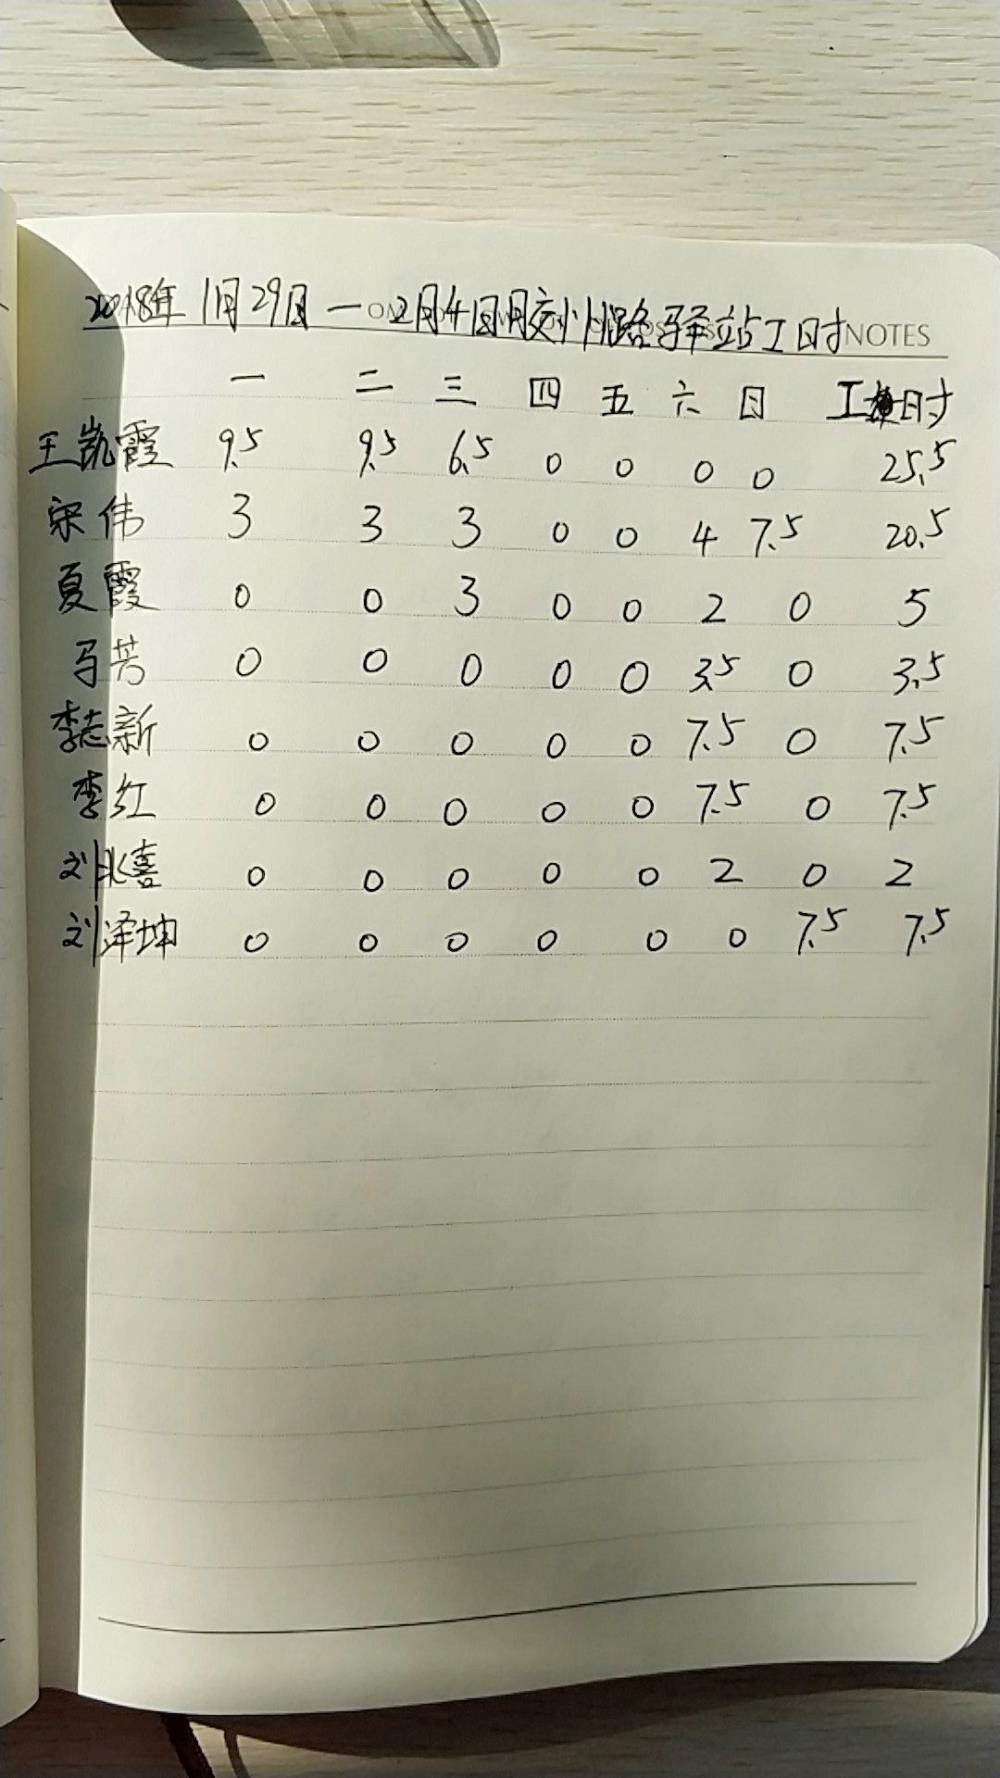 2018年1月29日一2月4日胶州路驿站工时NOTES
一 二 三 四 五 六 日 工时
王凯霞 9.5 9.5 6.5 0 0 0 0 25.5
宋伟 3 3 3 0 0 4 7.5 20.5
夏霞 0 0 3 0 0 2 0 5
马芳 0 0 0 0 0 3.5 0 3.5
李志新 0 0 0 0 0 7.5 0 7.5
李红 0 0 0 0 0 7.5 0 7.5
刘兆喜 0 0 0 0 0 2 0 2
刘泽坤 0 0 0 0 0 0 7.5 7.5